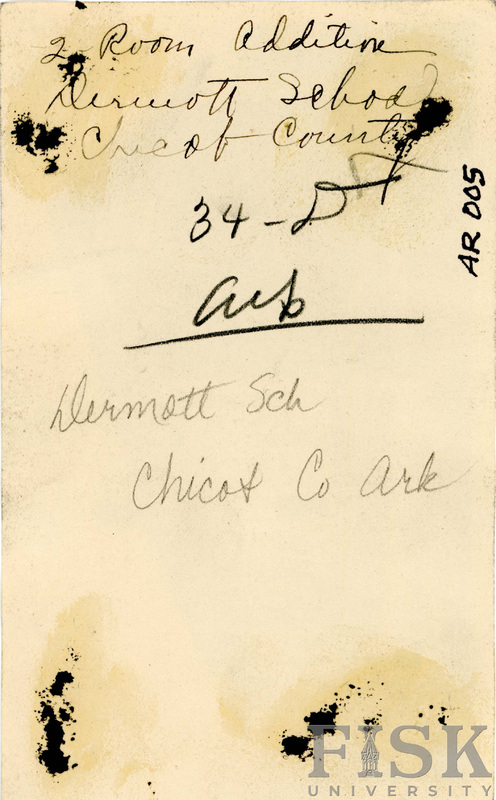 2 Room Addition
Dermott School
Chicot County
34-D
Ark
AR 005
Dermott Sch
Chicot Co Ark
FISK
UNIVERSITY